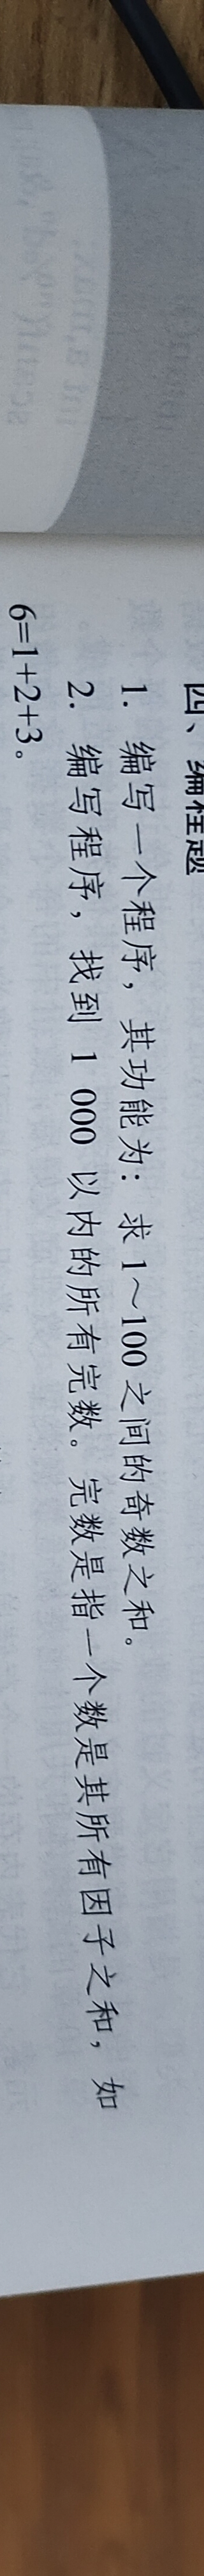 四、编程题
1. 编写一个程序，其功能为：求 1～100 之间的奇数之和。
2. 编写程序，找到 1 000 以内的所有完数。完数是指一个数是其所有因子之和，如
6=1+2+3。